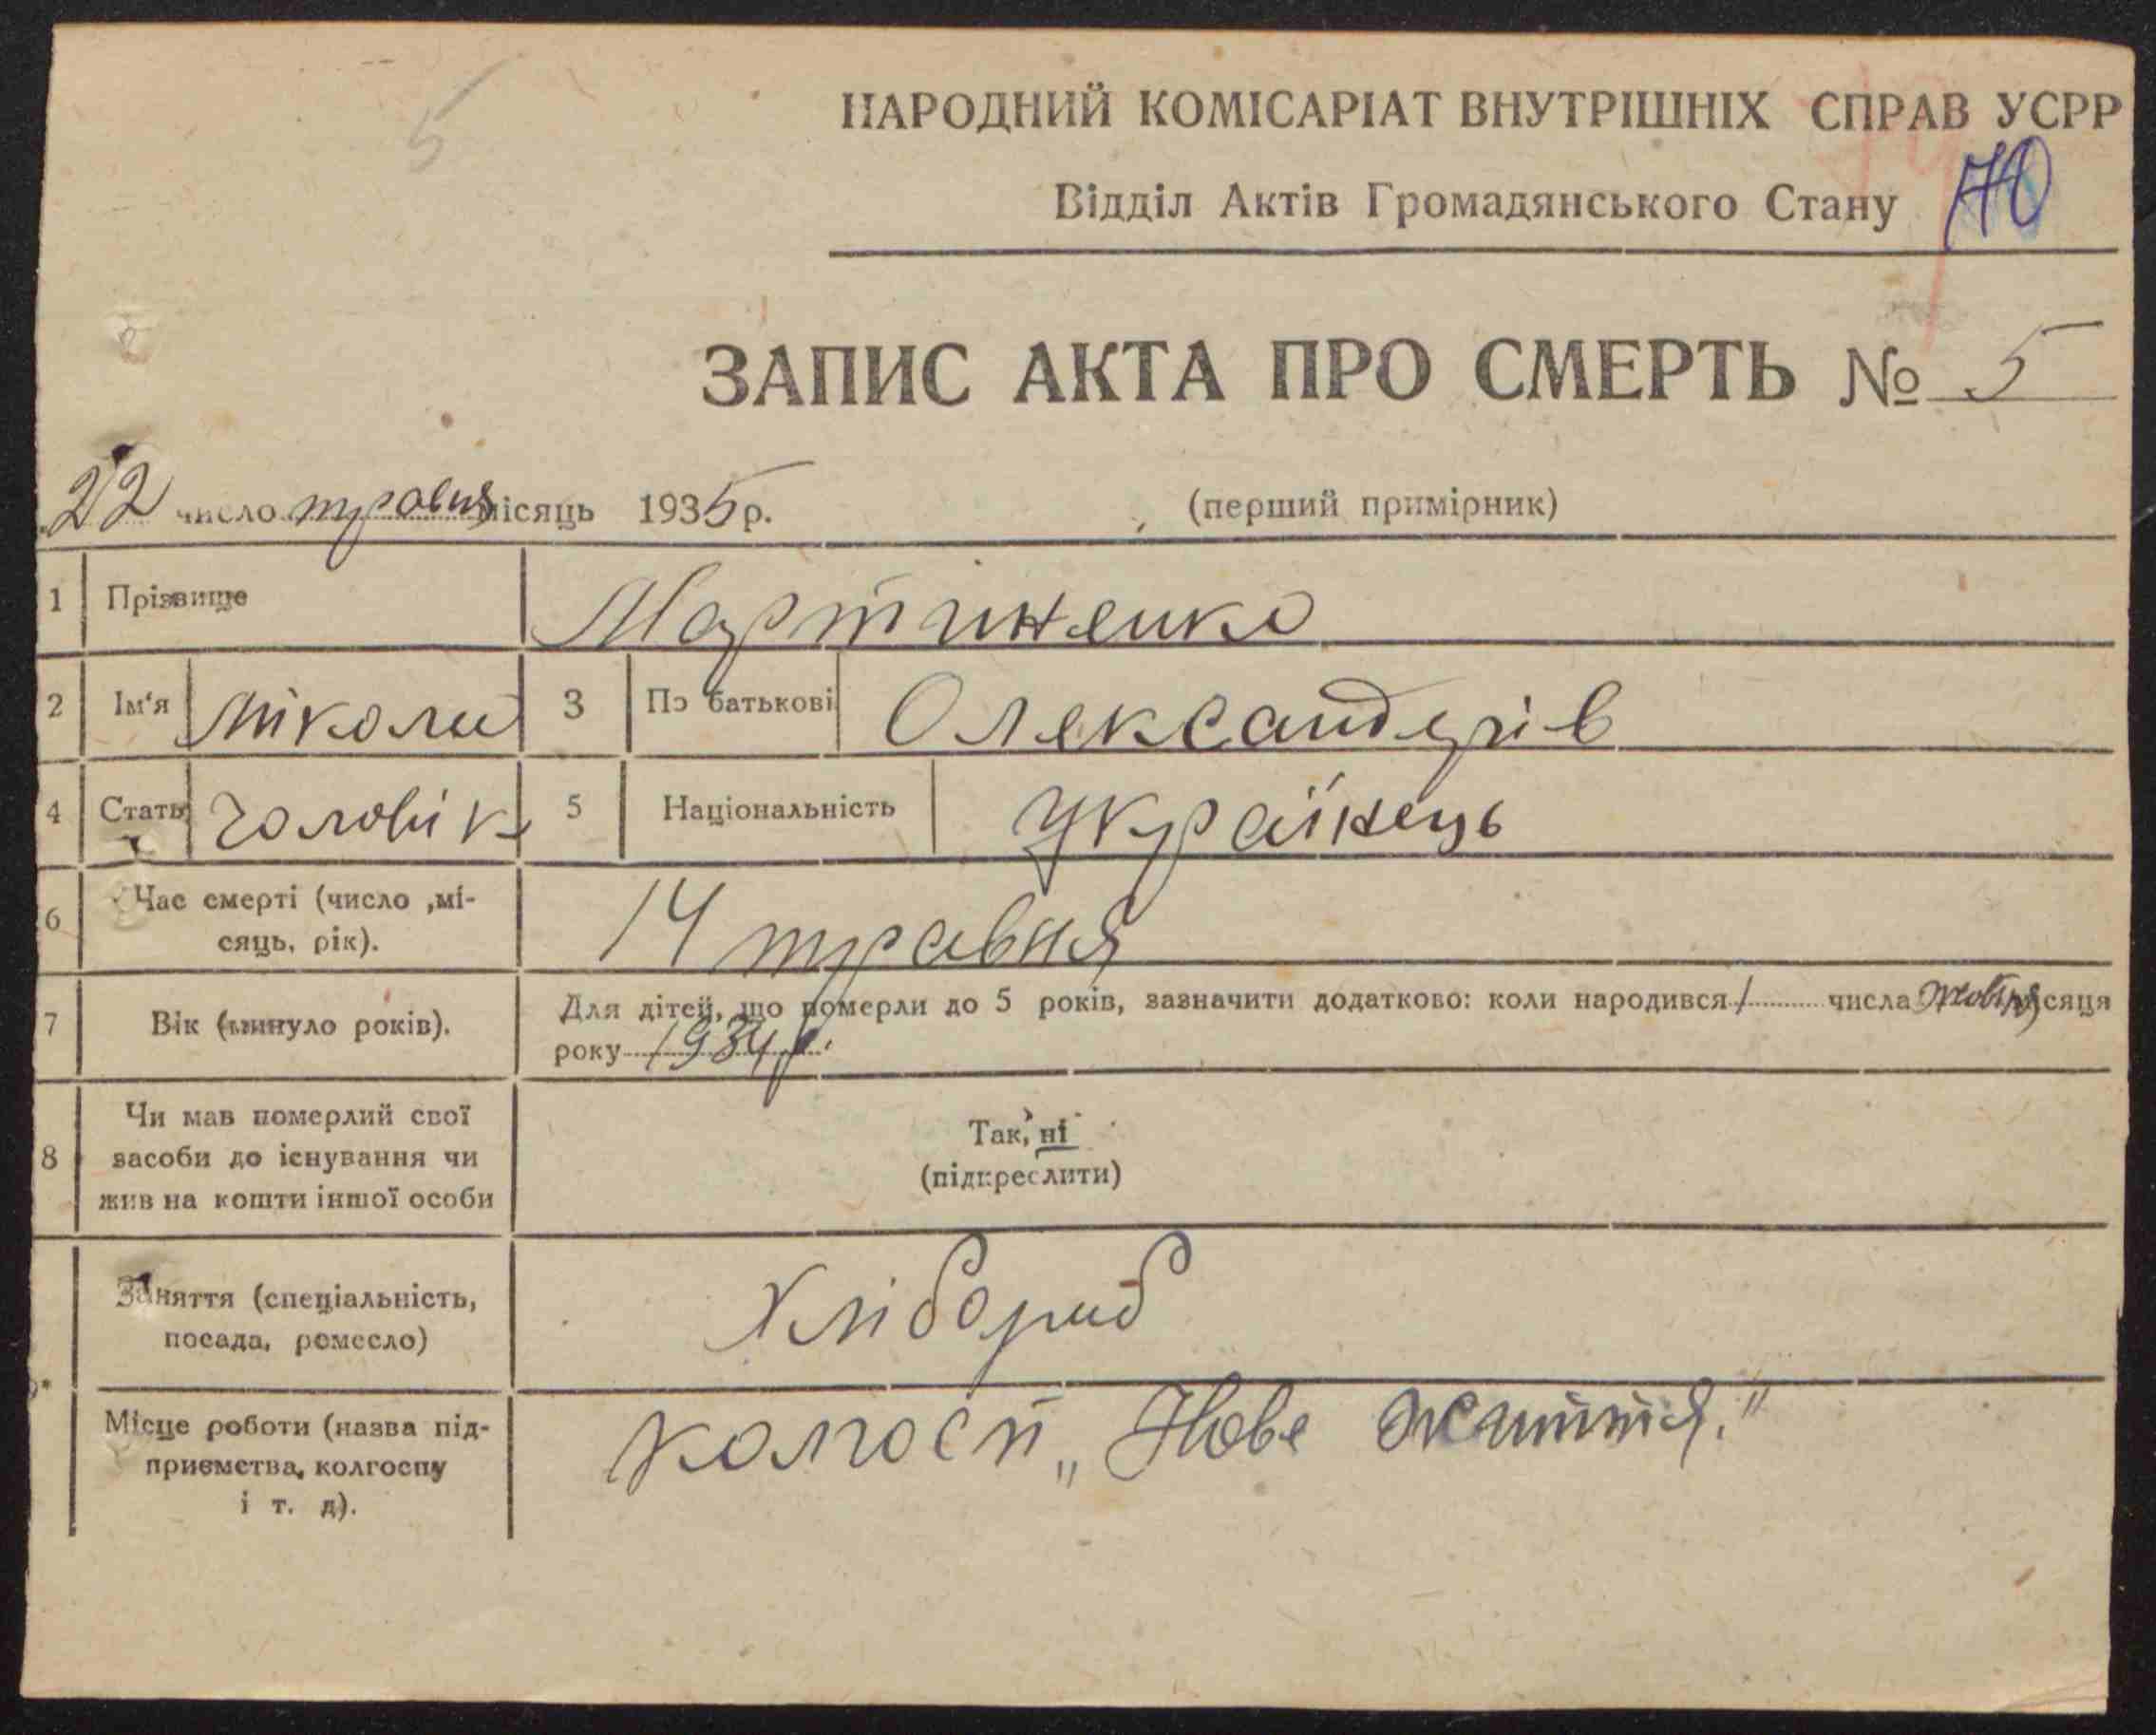 5
НАРОДНИЙ КОМІСАРІАТ ВНУТРІШНІХ СПРАВ УСРР
Відділ Актів Громадянського Стану 70
ЗАПИС АКТА ПРО СМЕРТЬ № 5
22 число травня місяць 1935 р. (перший примірник)
1 Прізвище Мартиненко
2 Ім'я Міколи 3 По батькові Олександрів
4 Стать чоловік 5 Національність Українець
6 Час смерті (число ,мі-
сяць, рік). 14 травня
7 Вік (минуло років). Для дітей, що померли до 5 років, зазначити додатково: коли народився 1 числа жовтня місяця
року 1934 р.
8 Чи мав померлий свої
засоби до існування чи
жив на кошти іншої особи
Так, ні
(підкреслити)
Заняття (спеціальність,
посада, ремесло) Хлібороб
Місце роботи (назва під-
приємства, колгоспу
і т. д). колгосп „Нове життя."